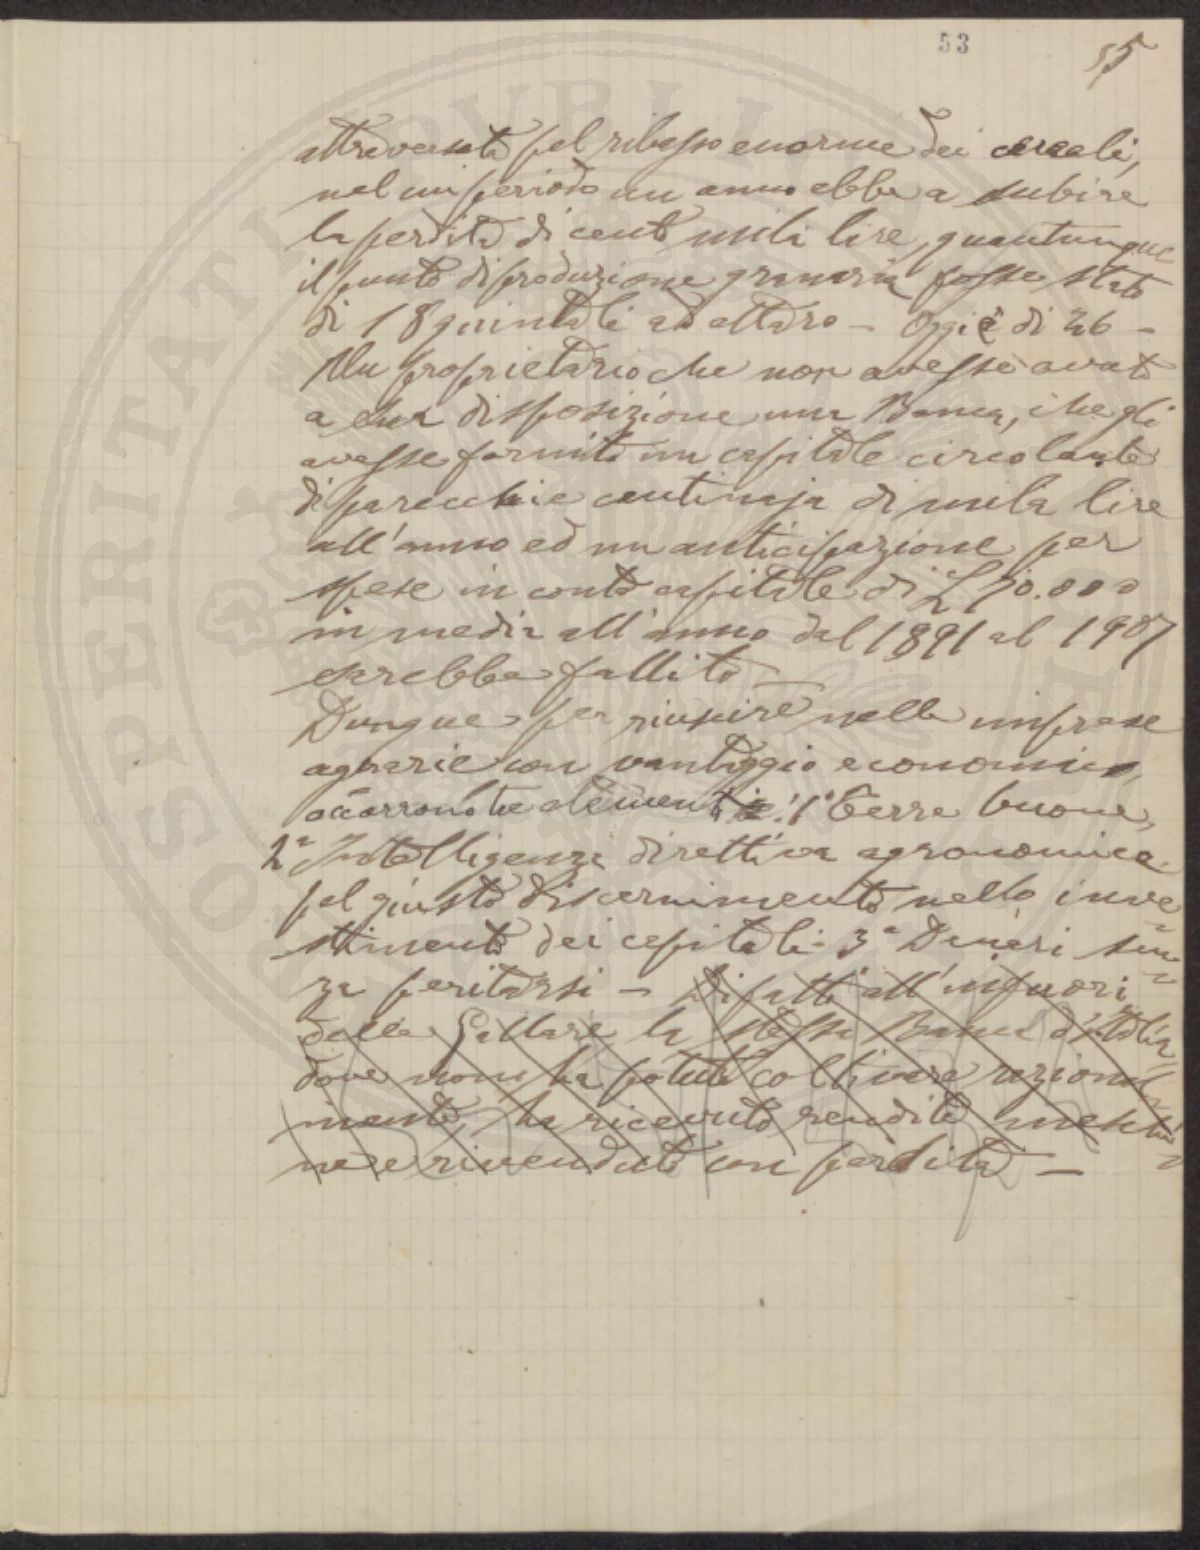 53
55
attraversata pel ribasso enorme dei cereali,
nel cui periodo un anno ebbe a subire
la perdita di cento mila lire, quantunque
il punto di produzione granaria fosse stato
di 18 quintali ad ettaro - Oggi è di 26 -
Un proprietario che non avesse avuto
a sua disposizione una Banca, che gli
avesse fornito un capitale circolante
di parecchie centinaja di mila lire
all'anno ed un anticipazione per
spese in conto capitale di £ 70.000
in media all'anno dal 1891 al 1907
sarebbe fallito -
Dunque per riuscire nelle imprese
agrarie con vantaggio economico,
occorrono tre elementi: 1° Terre buone,
2° Intelligenza direttiva agronomica
pel giusto discernimento nello inve
stimento dei capitali - 3° Denari sen
za peritarsi - Difatti all'infuori
delle Gallare la stessa Banca d'Italia
dove non ha potuto coltivare razional
mente, ha ricevuto rendite meschi
ne e rivenduto con perdita -
SPERITATI PUBLICA